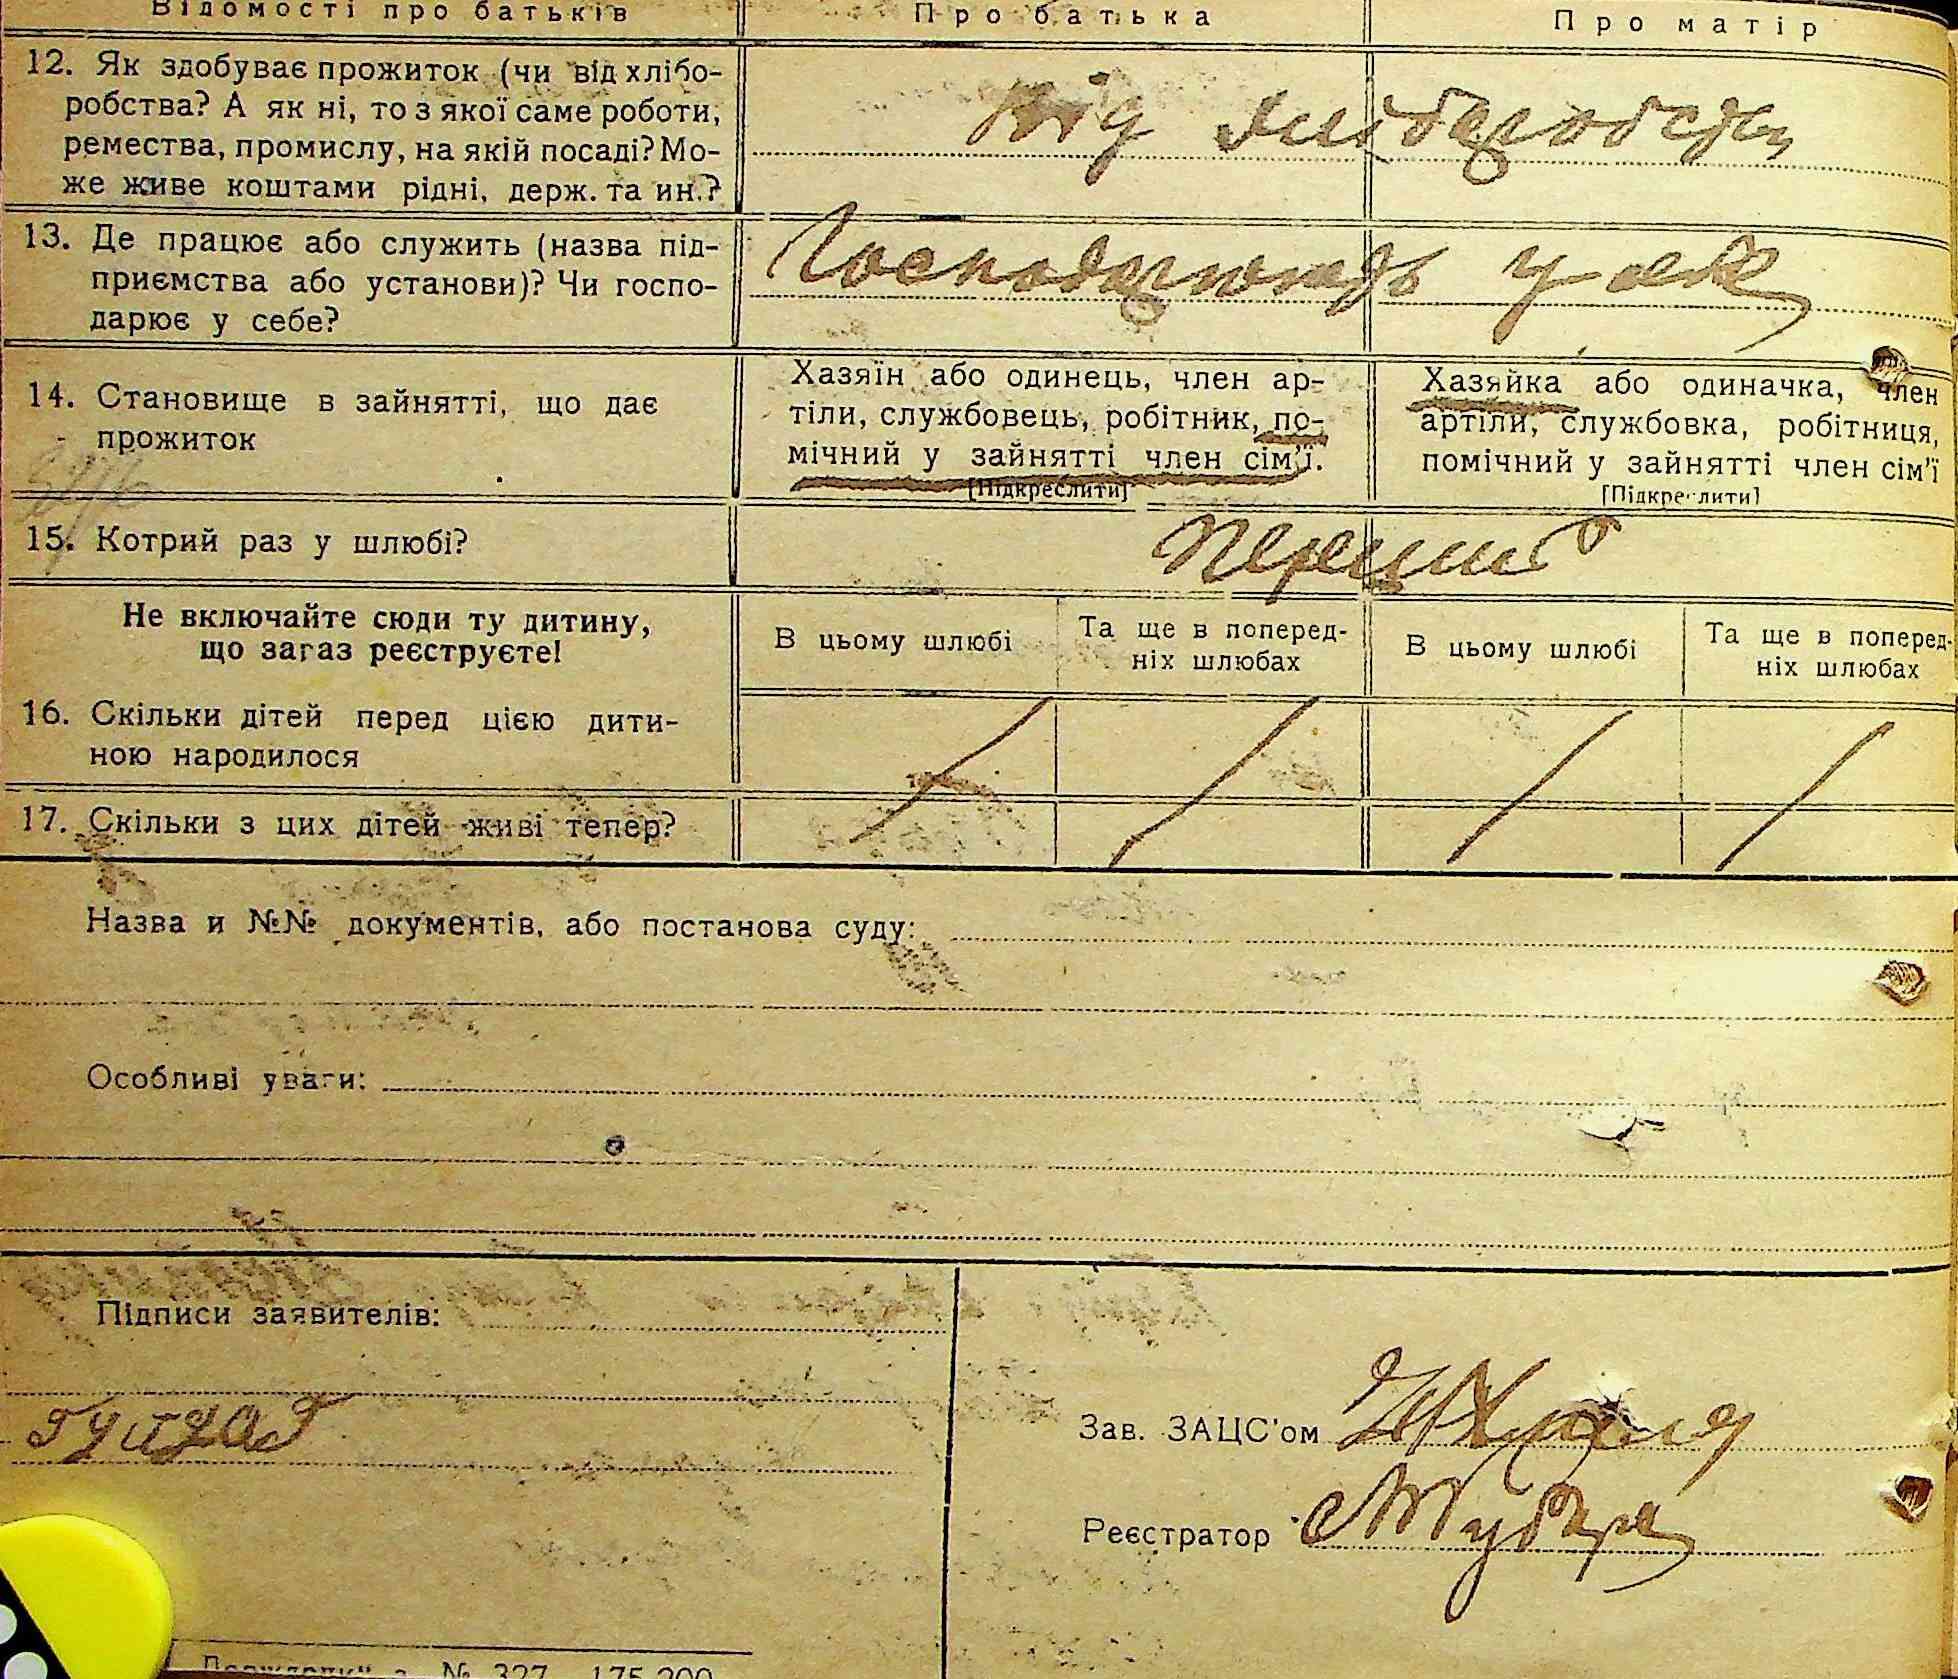 Відомості про батьків
Про батька
Про матір
12. Як здобуває прожиток (чи від хлібо-
робства? А як ні, то з якої саме роботи,
ремества, промислу, на якій посаді? Мо-
же живе коштами рідні, держ. та ин.?
Від хліборобства
13. Де працює або служить (назва під-
приємства або установи)? Чи госпо-
дарює у себе?
Господарюють у себе
14. Становище в зайнятті, що дає
прожиток
Хазяїн або одинець, член ар-
тіли, службовець, робітник, по-
мічний у зайнятті член сім’ї.
[Підкреслити]
Хазяйка або одиначка, член
артіли, службовка, робітниця,
помічний у зайнятті член сім’ї
[Підкреслити]
15. Котрий раз у шлюбі?
Перший
Не включайте сюди ту дитину,
що зараз реєструєте!
В цьому шлюбі
Та ще в поперед-
ніх шлюбах
В цьому шлюбі
Та ще в поперед-
ніх шлюбах
16. Скільки дітей перед цією дити-
ною народилося
17. Скільки з цих дітей живі тепер?
Назва и №№ документів, або постанова суду:
Особливі уваги:
Підписи заявителів:
Зав. ЗАЦС'ом
Реєстратор
№ 327 175.200